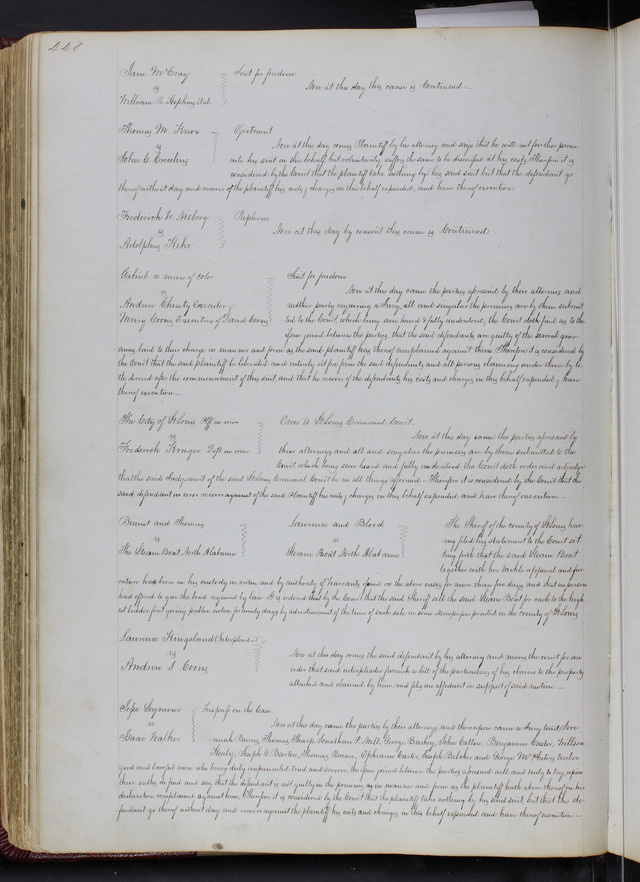 448
Jane McCray } Suit for freedom
vs Now at this day this cause is Continued.—
William R. Hopkins et al.
Thomas M. Knox } Ejectment
vs Now at this day comes Plaintiff by his attorney and says that he will not further prose-
John C. cute his suit in this behalf but voluntarily suffers the same to be dismissed at his costs, Therefore it is
considered by the Court that the plaintiff take nothing by his said suit but that the defendant go
thereof without day and recover of the plaintiff his costs & charges in this behalf expended, and have thereof execution
Frederick W. } Replevin
vs Now at this day by consent this cause is Continued.
Adolphus Kehr
Gabriel a man of color } Suit for freedom
vs Now at this day came the parties aforesaid by their attornies and
Andrew Christy Executor & neither party requiring a Jury, all and singular the premises are by them submit-
Mary Coons Executrix of David Coons ted to the Court, which being seen heard & fully understood, the Court doth find as to the
issue joined between the parties, that the said defendants are guilty of the several griev-
ances laid to their charge in manner and form as the said plaintiff has thereof complained against them. Therefore it is considered by
the Court that the said plaintiff be liberated and entirely set free from the said defendants and all persons claiming under them by ti-
tle derived after the commencement of this suit, and that he recover of the defendants his costs and charges in this behalf expended & have
thereof execution.—
The City of St Louis Plff in error } Error to St Louis Criminal Court.
vs Now at this day came the parties aforesaid by
Frederick Kruger Deft in error their attornies and all and singular the premises are by them submitted to the
Court, which being seen heard and fully understood the Court doth order and adjudge
that the said Judgment of the said St Louis Criminal Court be in all things affirmed. Therefore it is considered by the Court that the
said defendant in error recover against of the said Plaintiff his costs & charges in this behalf expended and have thereof execution.—
Benoist and Thomas } Lawrence and Blood } The Sheriff of the county of St Louis hav-
vs vs ing filed his statement to the Court set-
The Steam Boat North Alabama Steam Boat North Alabama ting forth that the said Steam Boat
together with her tackle apparel and fur-
niture had been in his custody in virtue and by authority of Warrants issued in the above cases for more than five days and that no person
had offered to give the bond required by law It is ordered that by the Court that the said Sheriff sell the said Steam Boat for cash to the high-
est bidder, first giving public notice for twenty days by advertisement of the time of such sale in some Newspaper printed in the county of St Louis
Lawrence Kingsland Interpleader }
vs Now at this day comes the said defendant by his attorney and moves the court for an
Andrew S. Coons order that said interpleader furnish a bill of the particulars of his claim to the property
attached and claimed by him, and files an affidavit in support of said motion.—
Jesse Seymour } Trespass on the Case.
vs Now at this day came the parties by their attornies and thereupon came a Jury towit, Jere-
Isaac Walker miah Burns, Thomas Tharp, Jonathan P. Mell, George Buskin, John Catton, Benjamin Easter, Willson
Henley, Joseph G. Barton, Thomas Brown, Ephraim Carter, Joseph Belcher and George Mc twelve
good and lawful men who being duly impannelled tried and sworn, the issue joined between the parties aforesaid well and truly to try, upon
their oaths do find and say that the defendant is not guilty in the premises, as in manner and form as the plaintiff hath above thereof in his
declaration complained against him. Therefore it is considered by the Court that the plaintiff take nothing by his said suit, but that the de-
fendant go thereof without day and recover against the plaintiff his costs and charges in this behalf expended and have thereof execution.—